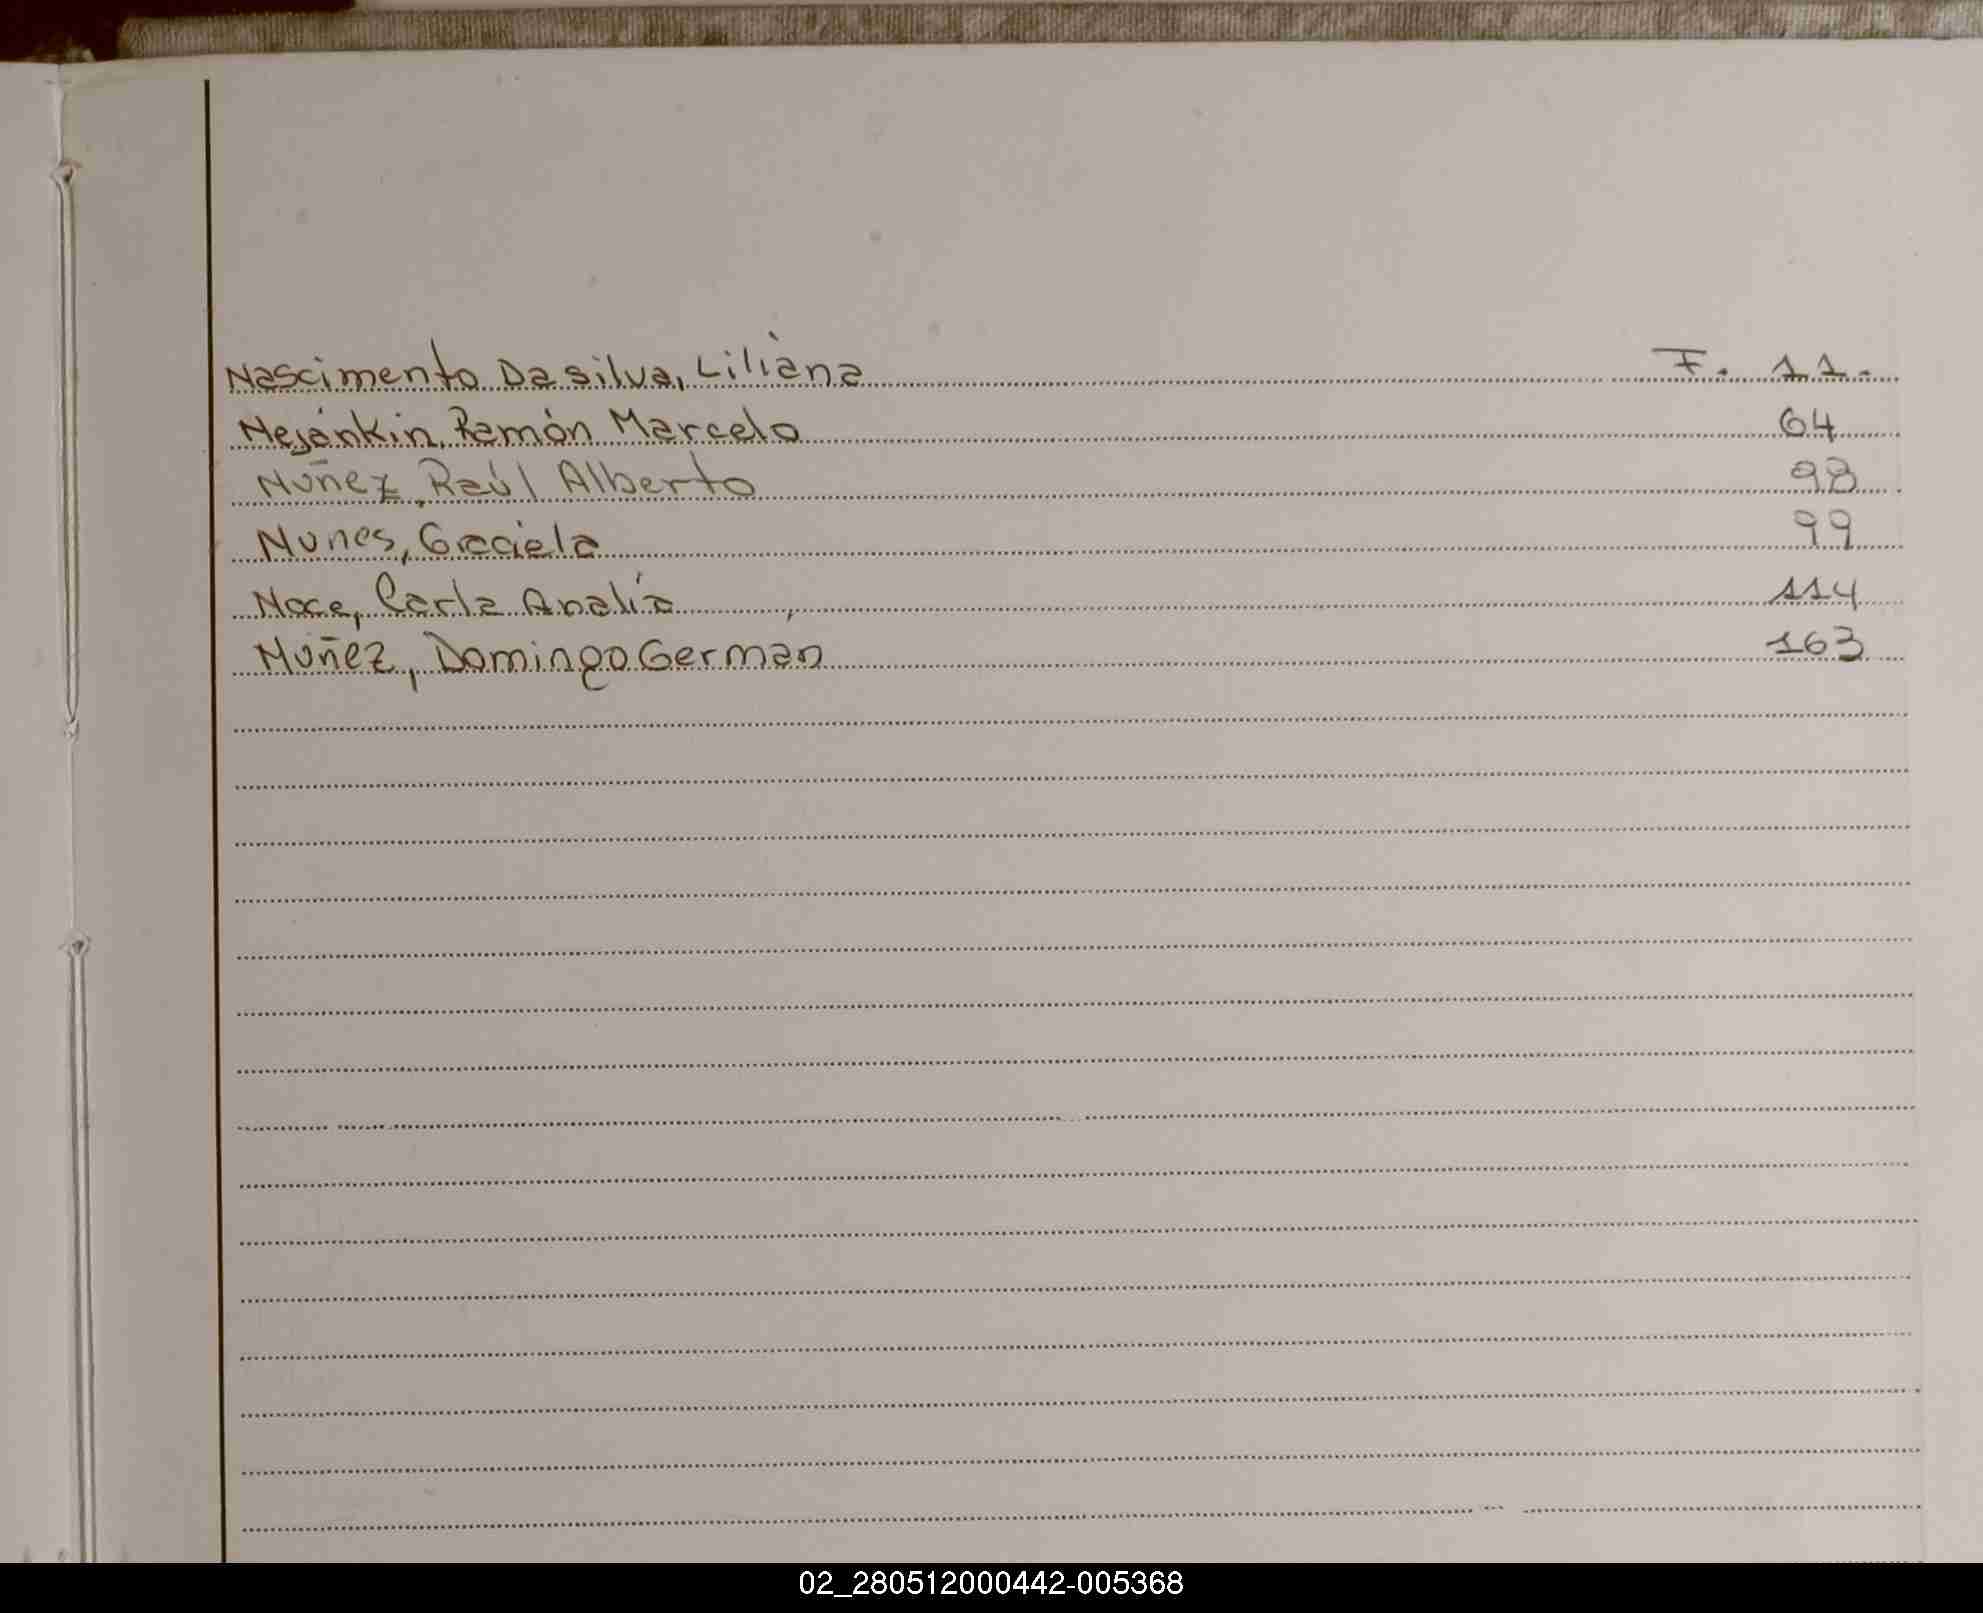 Nascimento Da silva, Liliana F. 11.
Nejánkin, Ramón Marcelo 64
Núñez, Raúl Alberto 98
Nunes, Graciela 99
Noce, Carla Analía 114
Núñez, Domingo German 163
02_280512000442-005368